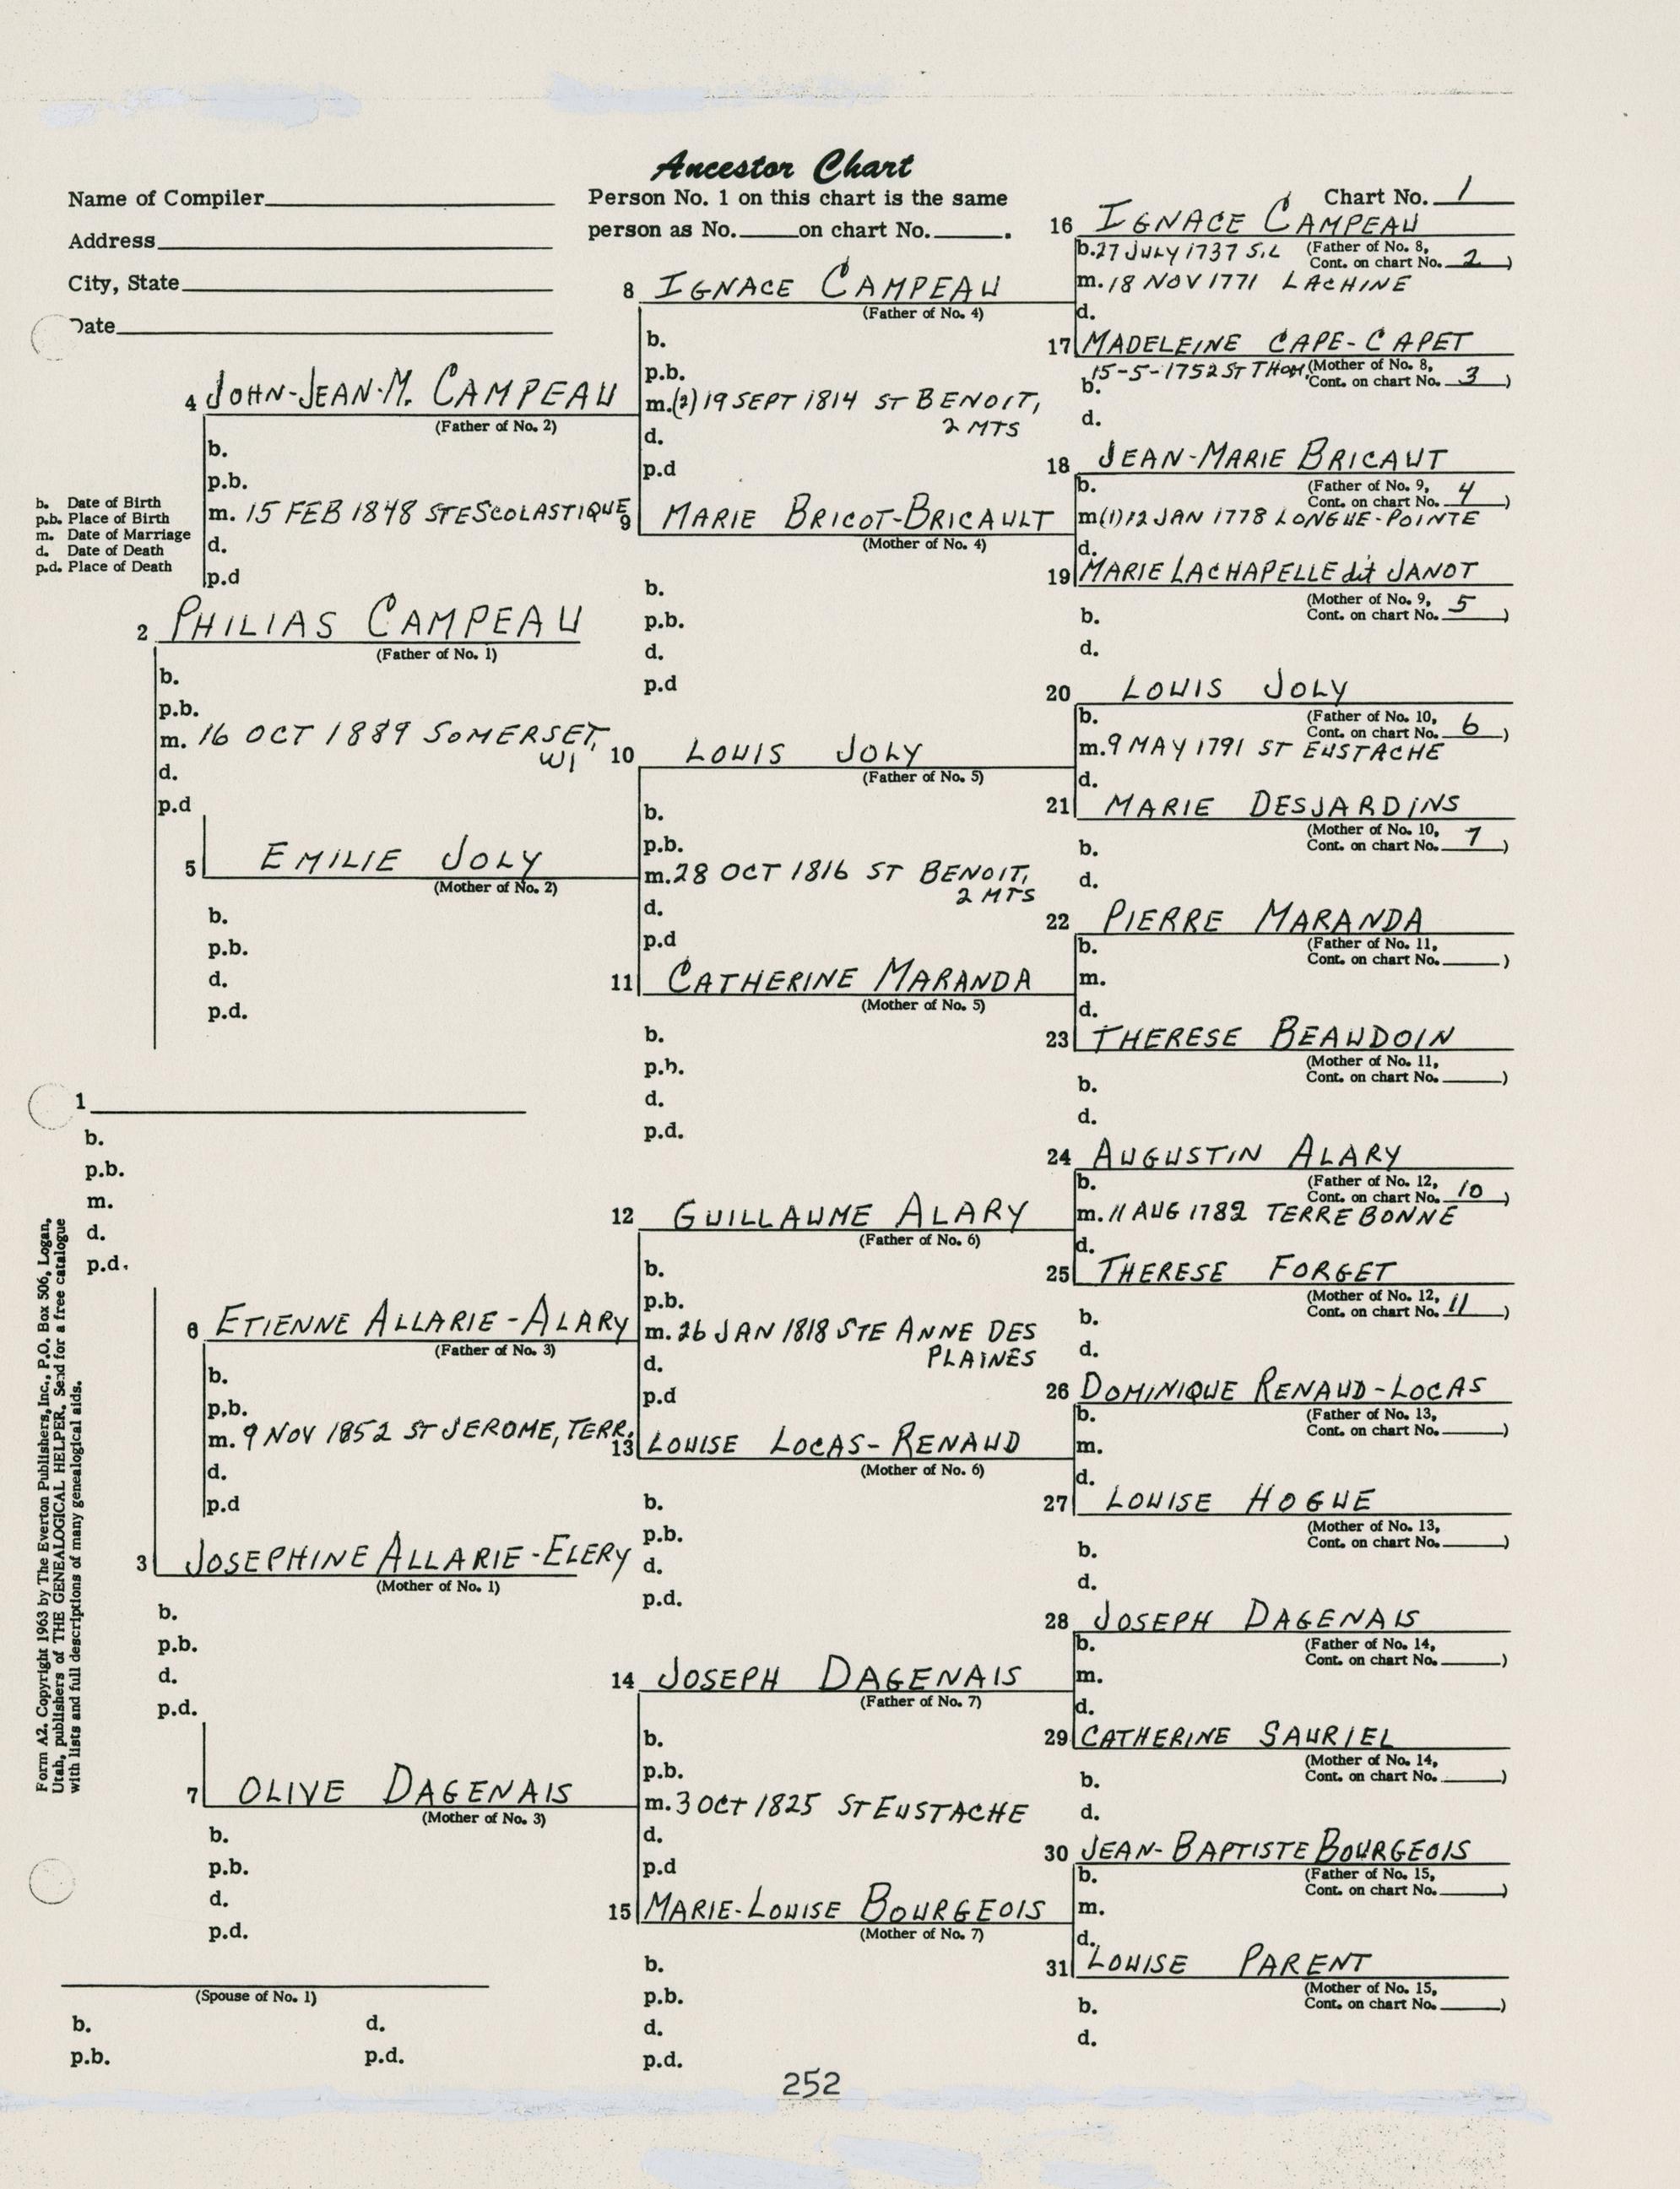 Ancestor Chart
Name of Compiler
Address
City, State
Date
Person No. 1 on this chart is the same
person as No. on chart No. .
Chart No. 1
b. Date of Birth
p.b. Place of Birth
m. Date of Marriage
d. Date of Death
p.d. Place of Death
1
b.
p.b.
m.
d.
p.d.
2 PHILIAS CAMPEAU
(Father of No. 1)
b.
p.b.
m. 16 OCT 1889 SOMERSET,
WI
d.
p.d
3 JOSEPHINE ALLARIE-ELERY
(Mother of No. 1)
b.
p.b.
d.
p.d.
4 JOHN-JEAN-M. CAMPEAU
(Father of No. 2)
b.
p.b.
m. 15 FEB 1848 STE SCOLASTIQUE
d.
p.d
5 EMILIE JOLY
(Mother of No. 2)
b.
p.b.
d.
p.d.
6 ETIENNE ALLARIE-ALARY
(Father of No. 3)
b.
p.b.
m. 9 NOV 1852 ST JEROME, TERR.
d.
p.d
7 OLIVE DAGENAIS
(Mother of No. 3)
b.
p.b.
d.
p.d.
8 IGNACE CAMPEAU
(Father of No. 4)
b.
p.b.
m. (2) 19 SEPT 1814 ST BENOIT,
2 MTS
d.
p.d
9 MARIE BRICOT-BRICAULT
(Mother of No. 4)
b.
p.b.
d.
p.d
10 LOUIS JOLY
(Father of No. 5)
b.
p.b.
m. 28 OCT 1816 ST BENOIT,
2 MTS
d.
p.d
11 CATHERINE MARANDA
(Mother of No. 5)
b.
p.b.
d.
p.d.
12 GUILLAUME ALARY
(Father of No. 6)
b.
p.b.
m. 26 JAN 1818 STE ANNE DES
PLAINES
d.
p.d
13 LOUISE LOCAS-RENAUD
(Mother of No. 6)
b.
p.b.
d.
p.d.
14 JOSEPH DAGENAIS
(Father of No. 7)
b.
p.b.
m. 3 OCT 1825 ST EUSTACHE
d.
p.d
15 MARIE-LOUISE BOURGEOIS
(Mother of No. 7)
b.
p.b.
d.
p.d.
16 IGNACE CAMPEAU
b. 27 JULY 1737 S.L (Father of No. 8,
Cont. on chart No. 2)
m. 18 NOV 1771 LACHINE
d.
17 MADELEINE CAPE-CAPET
15-5-1752 ST THOM. (Mother of No. 8,
b. Cont. on chart No. 3)
d.
18 JEAN-MARIE BRICAUT
b. (Father of No. 9,
Cont. on chart No. 4)
m(1) 12 JAN 1778 LONGUE-POINTE
d.
19 MARIE LACHAPELLE dit JANOT
(Mother of No. 9,
b. Cont. on chart No. 5)
d.
20 LOUIS JOLY
b. (Father of No. 10,
Cont. on chart No. 6)
m. 9 MAY 1791 ST EUSTACHE
d.
21 MARIE DESJARDINS
(Mother of No. 10,
b. Cont. on chart No. 7)
d.
22 PIERRE MARANDA
b. (Father of No. 11,
Cont. on chart No. )
m.
d.
23 THERESE BEAUDOIN
(Mother of No. 11,
b. Cont. on chart No. )
d.
24 AUGUSTIN ALARY
b. (Father of No. 12,
Cont. on chart No. 10)
m. 11 AUG 1782 TERREBONNE
d.
25 THERESE FORGET
(Mother of No. 12,
b. Cont. on chart No. 11)
d.
26 DOMINIQUE RENAUD-LOCAS
b. (Father of No. 13,
Cont. on chart No. )
m.
d.
27 LOUISE HOGUE
(Mother of No. 13,
b. Cont. on chart No. )
d.
28 JOSEPH DAGENAIS
b. (Father of No. 14,
Cont. on chart No. )
m.
d.
29 CATHERINE SAURIEL
(Mother of No. 14,
b. Cont. on chart No. )
d.
30 JEAN-BAPTISTE BOURGEOIS
b. (Father of No. 15,
Cont. on chart No. )
m.
d.
31 LOUISE PARENT
(Mother of No. 15,
b. Cont. on chart No. )
d.
(Spouse of No. 1)
b. d.
p.b. p.d.
Form A2. Copyright 1963 by The Everton Publishers, Inc., P.O. Box 506, Logan,
Utah, publishers of THE GENEALOGICAL HELPER. Send for a free catalogue
with lists and full descriptions of many genealogical aids.
252